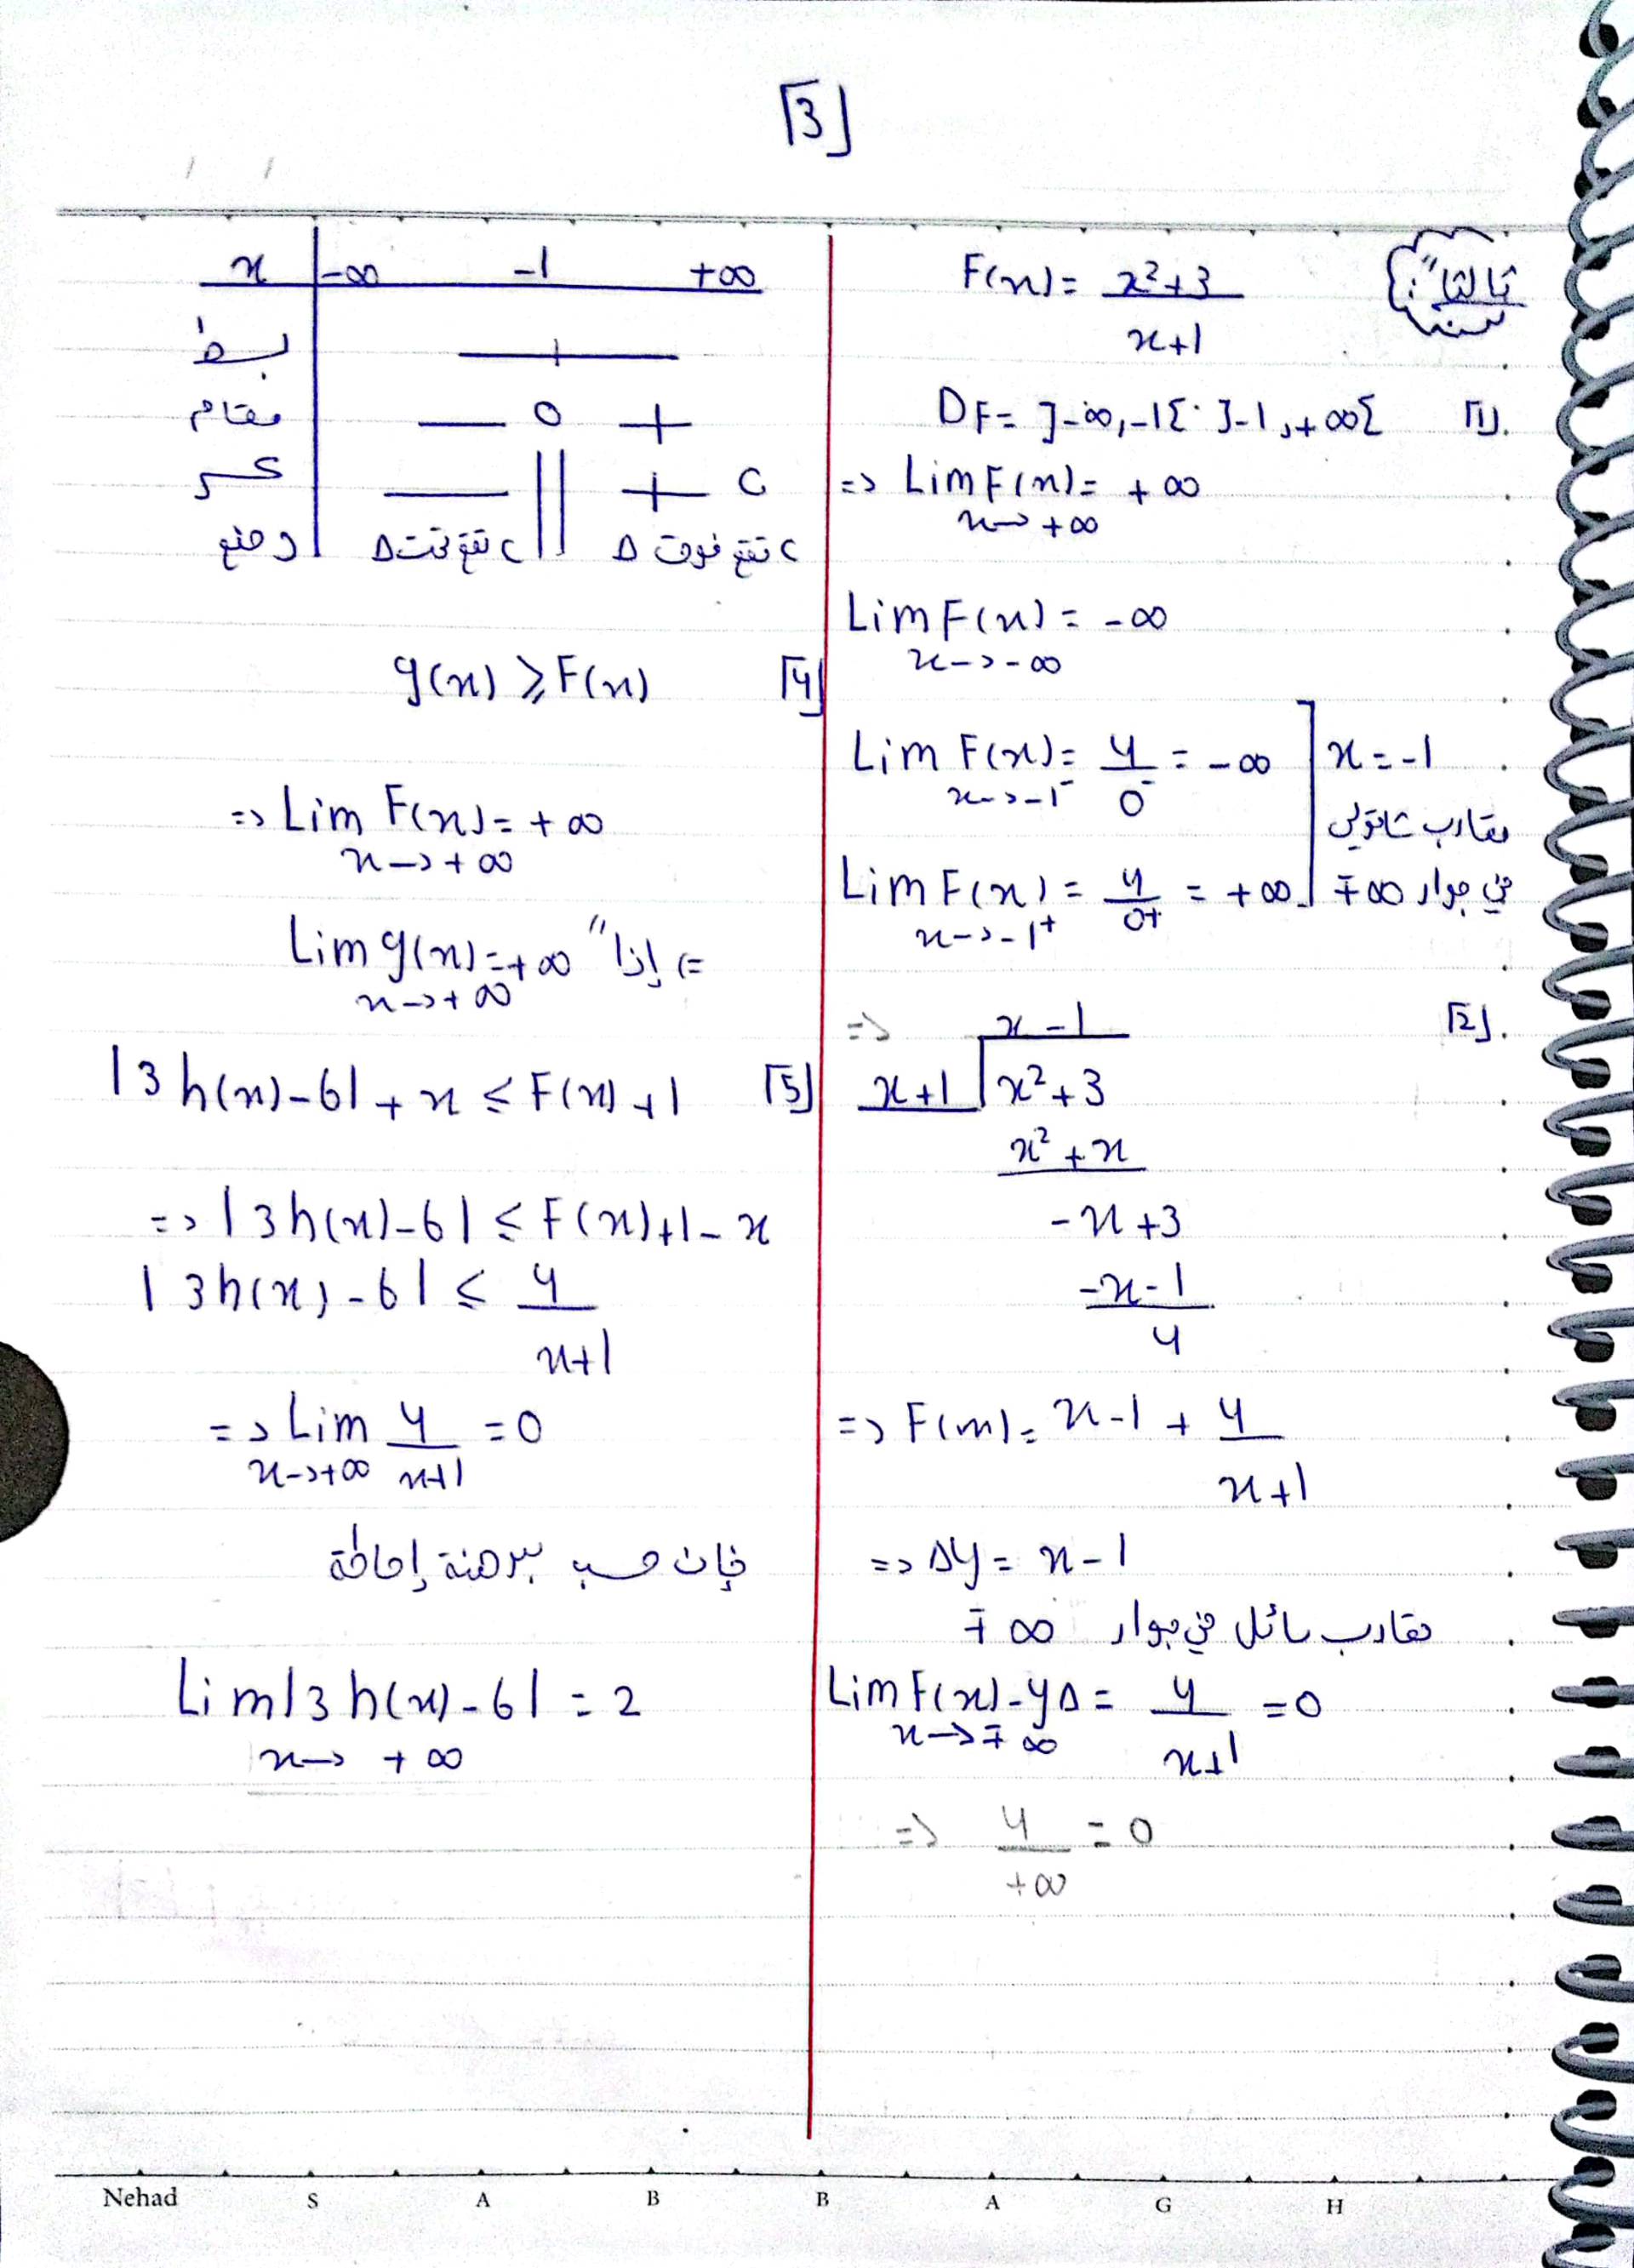 [3]
ثالثاً:
F(x) = x²+3 / x+1
[1] D_F = ]-∞,-1[ , ]-1,+∞[
=> Lim F(x) = +∞
x→+∞
Lim F(x) = -∞
x→-∞
Lim F(x) = 4/0⁻ = -∞ ] x = -1
x→-1⁻
مقارب شاقولي
Lim F(x) = 4/0+ = +∞ ] في جوار ∓∞
x→-1⁺
[2]
=> x-1
x+1 | x²+3
x²+x
-x+3
-x-1
4
=> F(x) = x-1 + 4/x+1
=> Δy = x-1
مقارب مائل في جوار ∓∞
Lim F(x)-yΔ = 4/x+1 = 0
x→∓∞
=> 4/+∞ = 0
x | -∞ -1 +∞
بسط +
مقام - 0 +
كسر - || + C
وضع C تقع تحت Δ || C تقع فوق Δ
[4] g(x) ≥ F(x)
=> Lim F(x) = +∞
x→+∞
=> إذاً Lim g(x) = +∞
x→+∞
[5] |3h(x)-6|+x ≤ F(x)+1
=> |3h(x)-6| ≤ F(x)+1-x
|3h(x)-6| ≤ 4/x+1
=> Lim 4/x+1 = 0
x→+∞
فإن حسب مبرهنة إحاطة
Lim|3h(x)-6| = 2
x→+∞
Nehad S A B B A G H